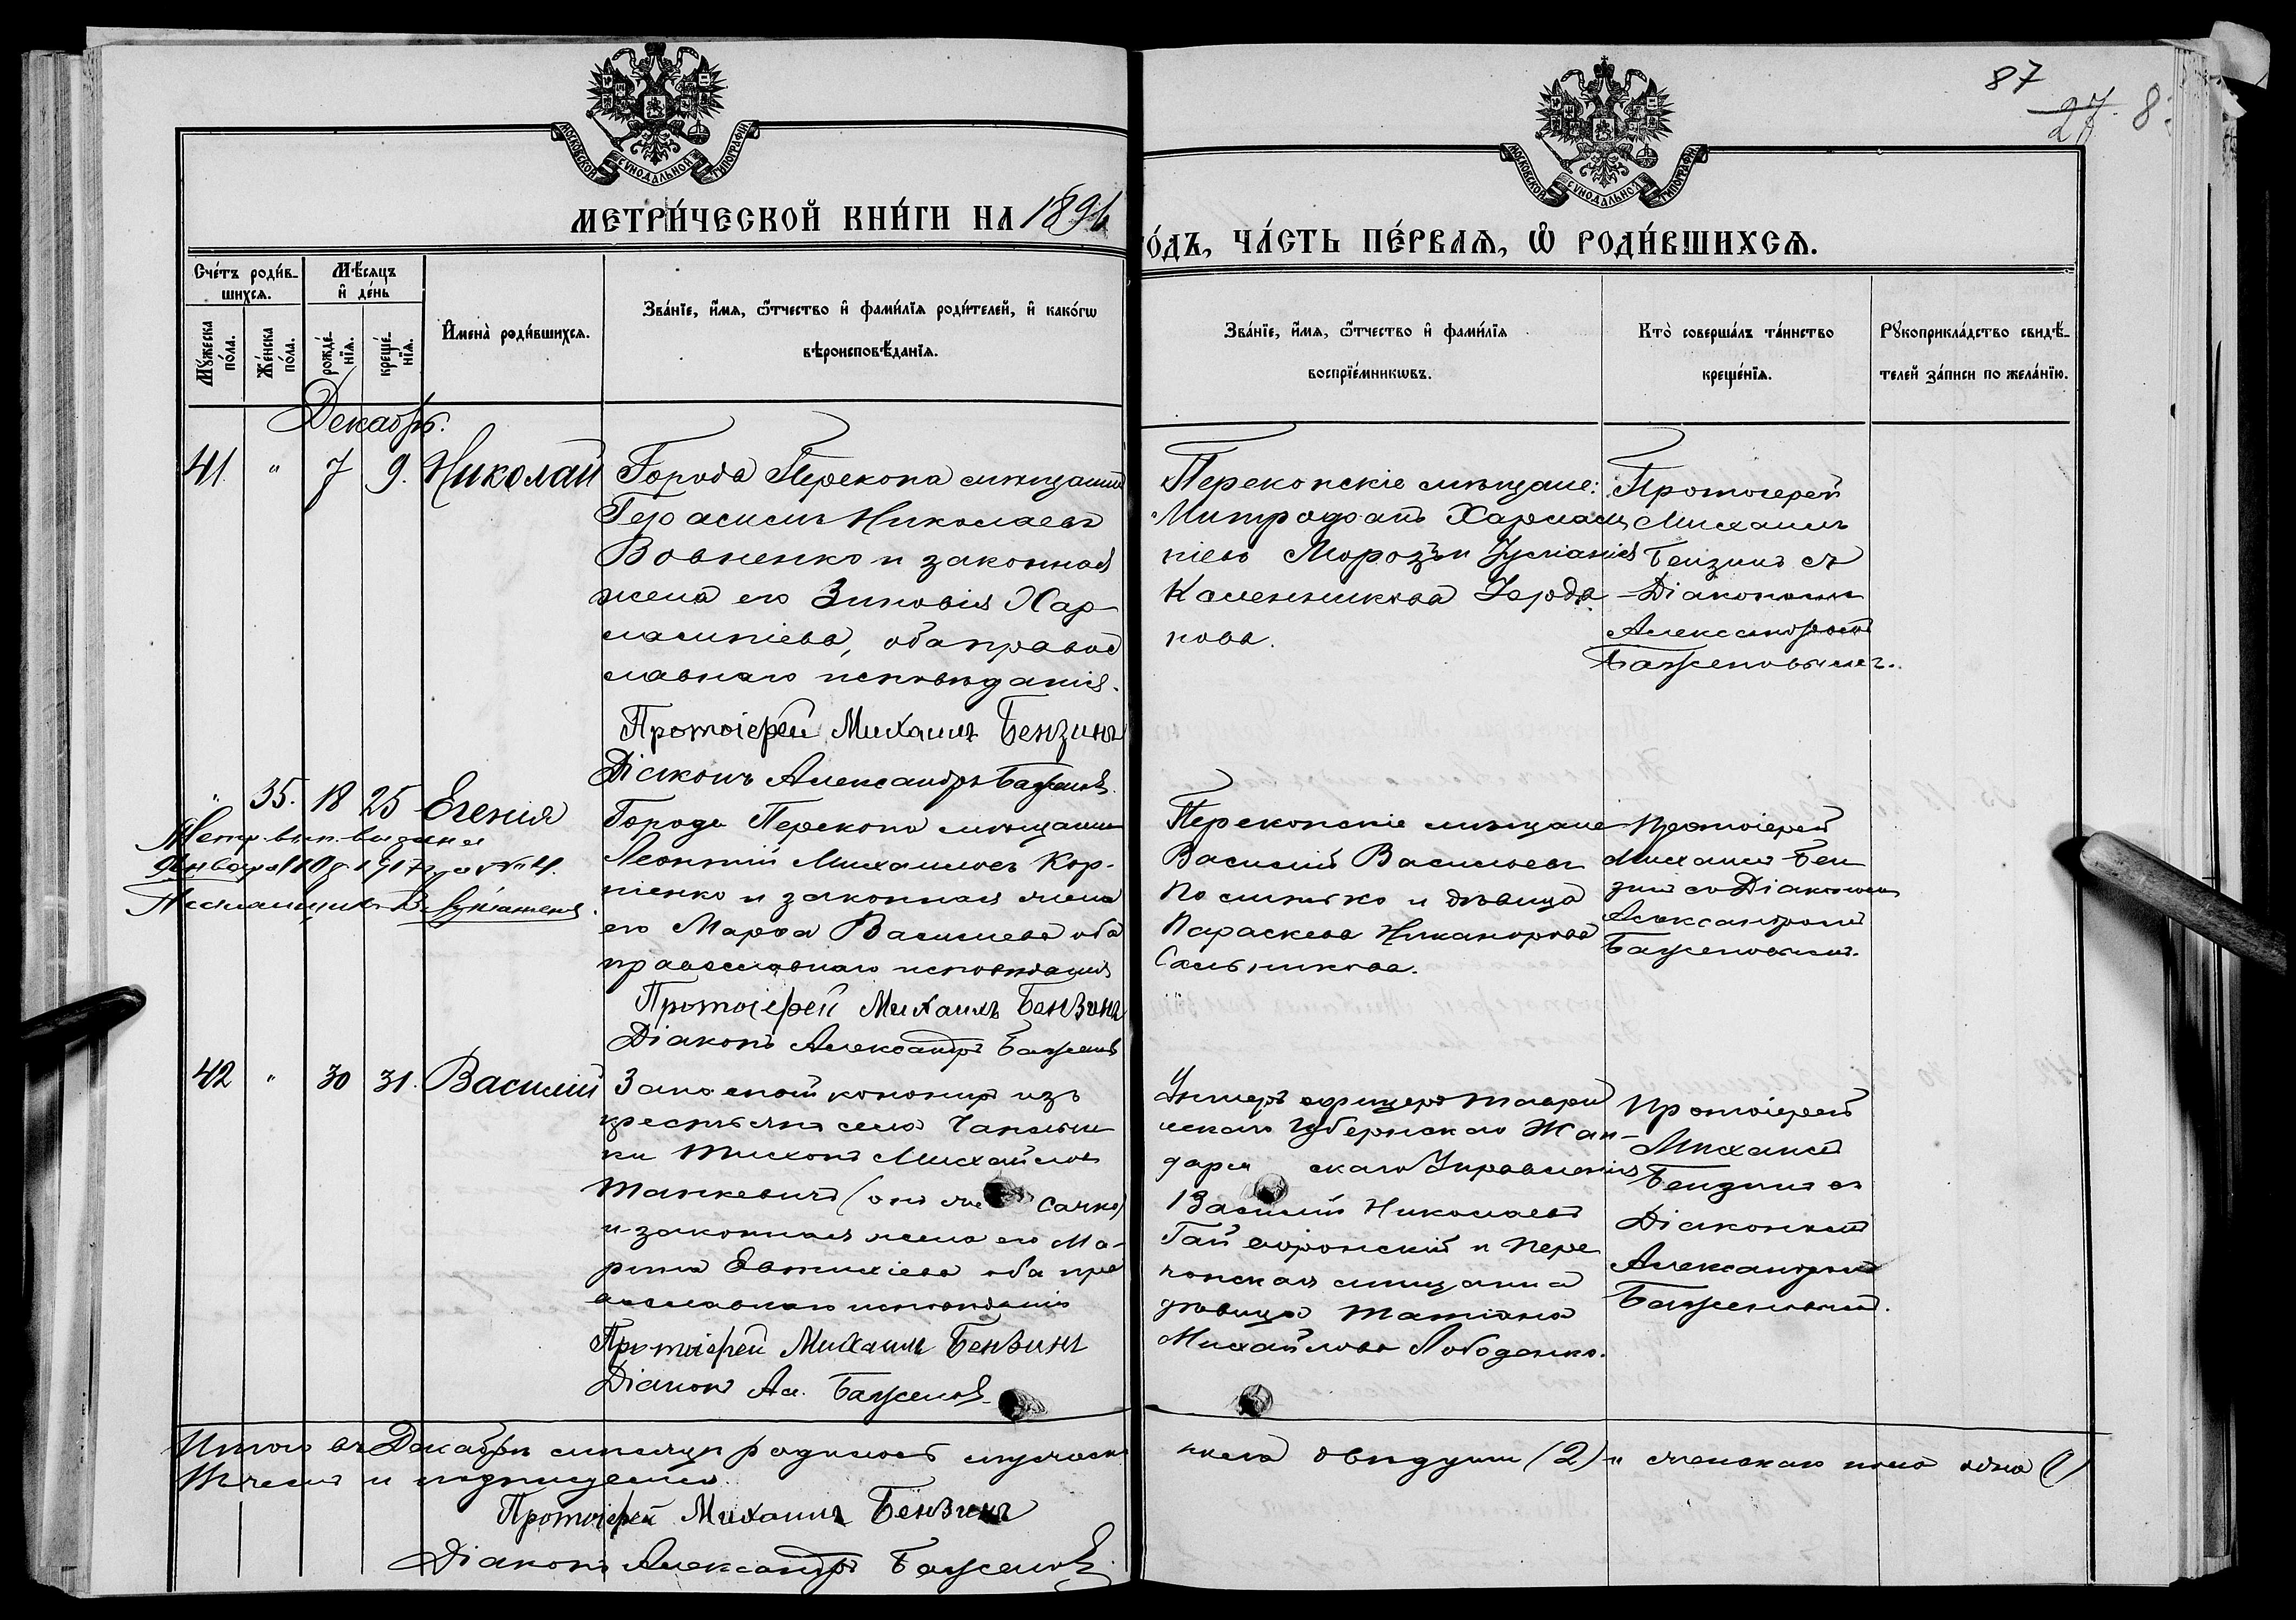 87
27
8
МОСКОВСКОЙ СѴНОДАЛЬНОЙ ТИПОГРАФІИ.
МОСКОВСКОЙ СѴНОДАЛЬНОЙ ТИПОГРАФІИ.
МЕТРИ́ЧЕСКОЙ КНИ́ГИ НА 1896
О́ДЪ, ЧА́СТЬ ПЕ́РВАѦ, Ѽ РОДИ́ВШИХСѦ.
Сче́тъ роди́в-
шихсѧ.
Мꙋ́жеска
по́ла.
Же́нска
по́ла.
Мѣ́сѧцъ
и҆ де́нь
рожде́-
нїѧ.
креще́-
нїѧ.
И҆мена̀ роди́вшихсѧ.
Зва́нїе, и҆́мѧ, ѻ҆́тчество и҆ фами́лїѧ роди́телей, и҆ како́гѡ
вѣроисповѣ́данїѧ.
Зва́нїе, и҆́мѧ, ѻ҆́тчество и҆ фами́лїѧ
воспрїе́мникѡвъ.
Кто̀ соверша́лъ та́инство
креще́нїѧ.
Рꙋкоприкла́дство свидѣ́-
телей за́писи по жела́нїю.
Декабрь.
41 " 7 9. Николай
Города Перекопа мѣщанинъ
Герасимъ Николаевъ
Вовненко и законная
жена его Зиновія Хар-
лампіева, оба право
славнаго исповѣданія.
Протоіерей Михаилъ Бензинъ
Діаконъ Александръ Баженовъ.
Перекопскіе мѣщане:
Митрофанъ Харлам
піевъ Морозъ и
Протоіерей
Михаилъ
Бензинъ съ
Діакономъ
Александромъ
Баженовымъ.
" 35. 18 25 Егенія
Метр. вып. выдана
Января 10 д. 1917 г. за № 4.
Псаломщикъ В.
Города Перекопа мѣщанинъ
Леонтій Михаиловъ Кор-
ніенко и законная жена
его Марфа Васильева оба
православнаго исповѣданія
Протоіерей Михаилъ Бензинъ
Діаконъ Александръ Баженовъ
Перекопскіе мѣщане
Василій Васильевъ
и дѣвица
Параскева Никанорова
Сальникова.
Протоіерей
Михаилъ Бен
зинъ съ Діакономъ
Александромъ
Баженовымъ.
42 " 30 31. Василій
Запасной канониръ изъ
крестьянъ села Чаплин
ки Тихонъ Михайловъ
Танкевичъ (онъ же Сачко)
и законная жена его Ма-
рина Евтихіева оба пра
вославнаго исповѣданія
Протоіерей Михаилъ Бензинъ
Діаконъ Ал. Баженовъ.
Унтеръ офицеръ Таври
ческаго Губернскаго Жан-
дарм скаго Управленія
Василій Николаевъ
Гайворонскій и Пере
копская мѣщанка
дѣвица Татіана
Михайлова Лободенко.
Протоіерей
Михаилъ
Бензинъ съ
Діакономъ
Александромъ
Баженовымъ.
Итого въ Декабрѣ мѣсяцѣ родилось мужеска
пола двѣ души (2) и женскаго пола одна (1)
Протоіерей Михаилъ Бензинъ
Діаконъ Александръ Баженовъ